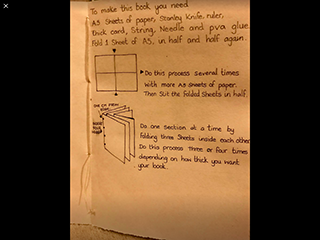 To make this book you need
A3 Sheets of paper, Stanley Knife, ruler,
Thick card, String, Needle and pva glue.
Fold 1 Sheet of A3, in half and half again.
Do this process several times
with more A3 sheets of paper.
Then Slit the folded Sheets in half.
Do one section at a time by
folding three Sheets inside each other
Do this process Three or four times
depending on how thick you want
your book.